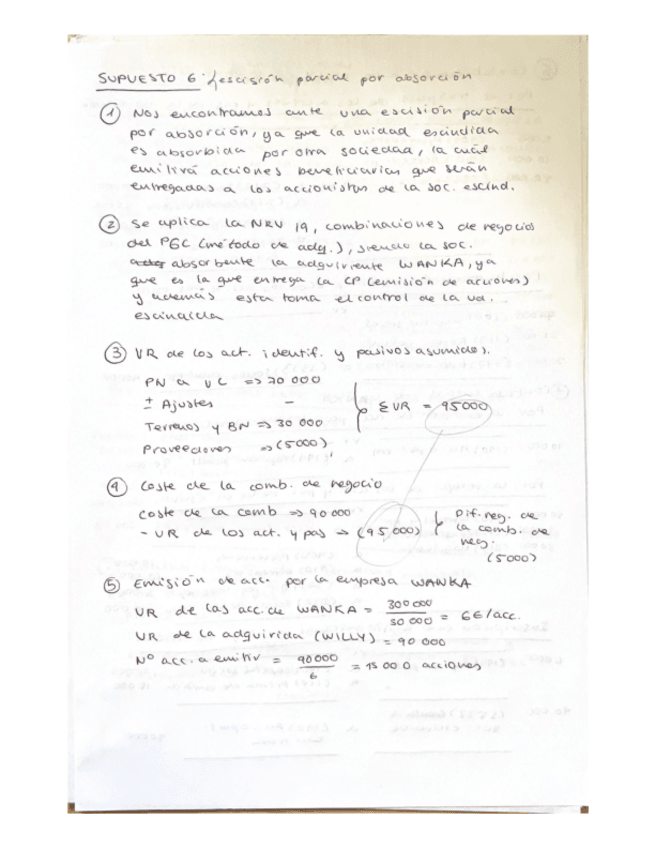 SUPUESTO 6: escisión parcial por absorción
① Nos encontramos ante una escisión parcial
por absorción, ya que la unidad escindida
es absorbida por otra sociedad, la cual
emitirá acciones beneficiarias que serán
entregadas a los accionistas de la soc. escind.
② Se aplica la NRV 19, combinaciones de negocios
del PGC (método de adq.), siendo la soc.
absorbente la adquiriente WANKA, ya
que es la que entrega la CP (emisión de acciones)
y además esta toma el control de la ud.
escindida
③ VR de los act. identif. y pasivos asumidos.
PN a VC => 70 000
± Ajustes -
Terrenos y BN => 30 000
Proveedores => (5000)
Σ VR = 95000
④ Coste de la comb. de negocio
Coste de la comb => 90 000
- VR de los act. y pas => (95 000)
Dif. neg. de
la comb. de
neg.
(5000)
⑤ Emisión de acc. por la empresa WANKA
VR de las acc. de WANKA = 300 000 / 50 000 = 6€/acc.
VR de la adquirida (WILLY) = 90 000
Nº acc. a emitir = 90000 / 6 = 15 000 acciones